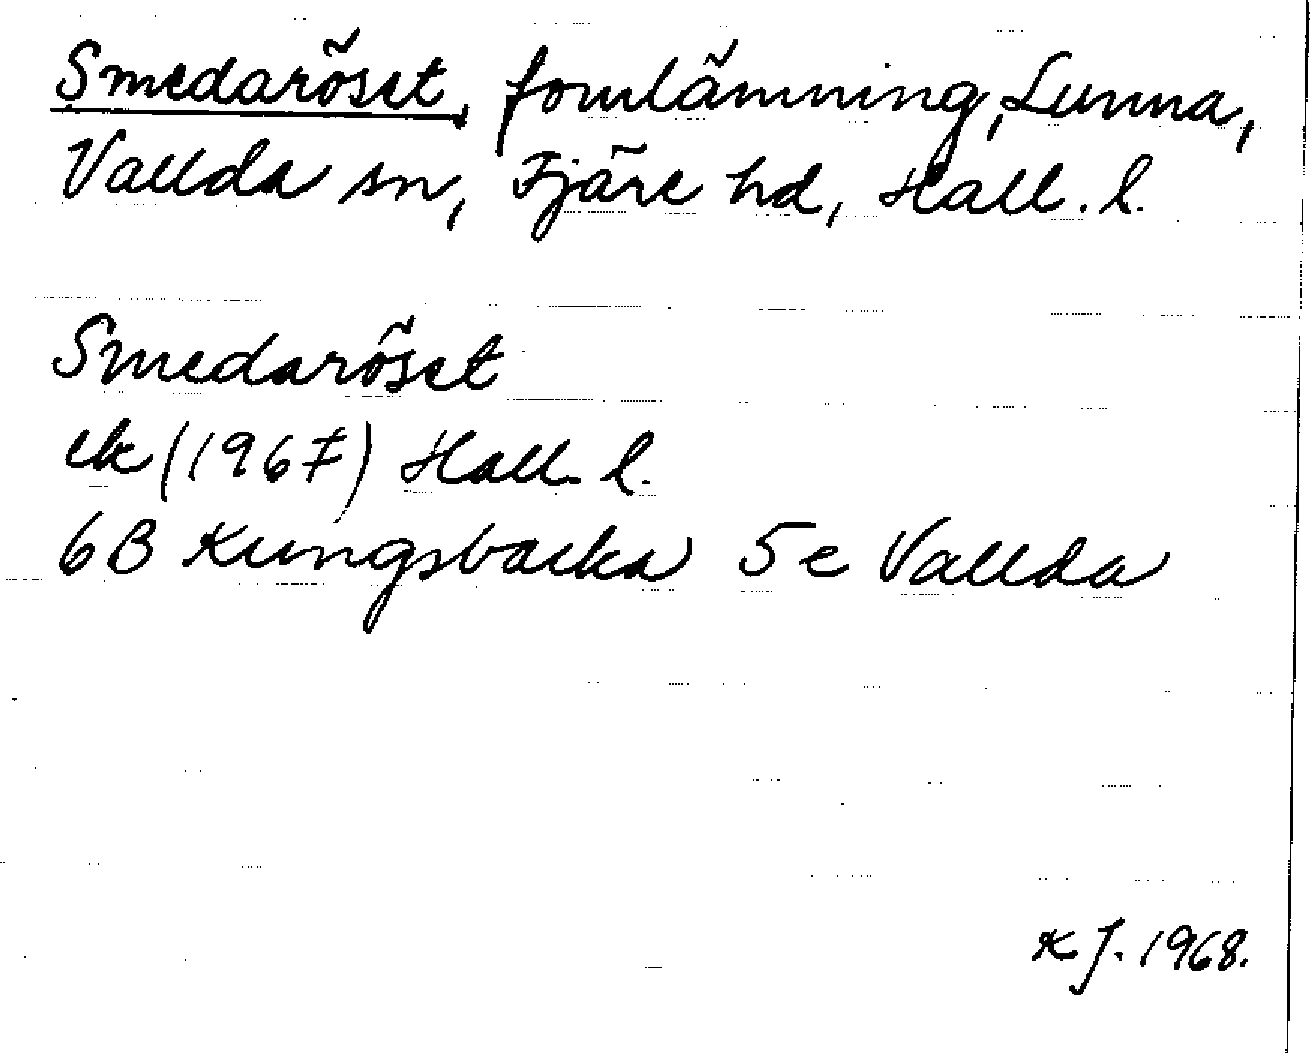 Smedaröset, fornlämning, Lunna,
Vallda sn, Fjäre hd, Hall. l.
Smedaröset
ek (1967) Hall. l.
6B Kungsbacka 5e Vallda
K. J. 1968.